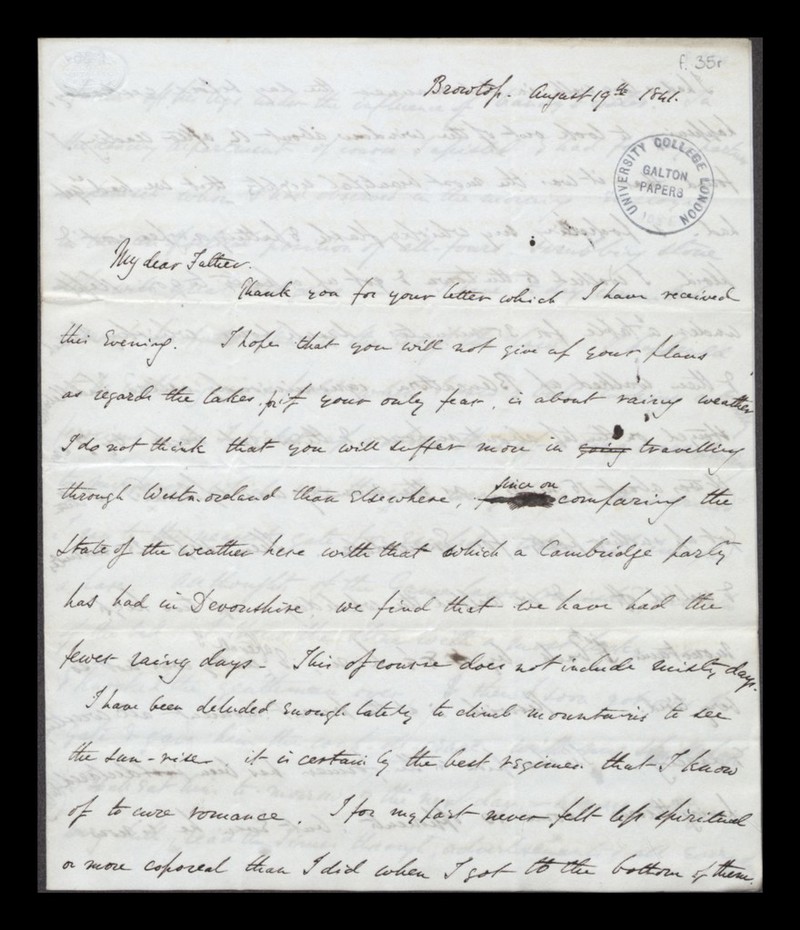 f. 35r
Browtop. August 19th 1841.
UNIVERSITY COLLEGE LONDON
GALTON
PAPERS
My dear Father.
Thank you for your letter which I have received
this Evening. I hope that you will not give up your plans
as regards the lakes, if your only fear, is about rainy weather
I do not think that you will suffer more in going travelling
through Westmoreland than Elsewhere, since on comparing the
State of the weather here with that which a Cambridge party
has had in Devonshire, we find that we have had the
fewer rainy days - This of course does not include misty days.
I have been deluded Enough lately to climb mountains to see
the sun-rise it is certainly the best regimen that I know
of to cure romance. I for my part never felt less spiritual
or more coporeal than I did when I got to the bottom of them.